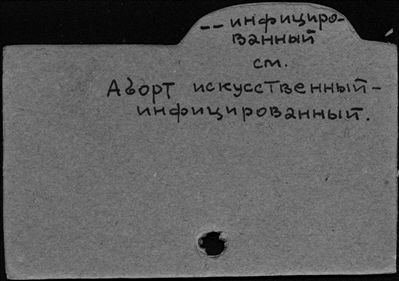 -- инфициро-
ванный
см.
Аборт искусственный-
инфицированный.